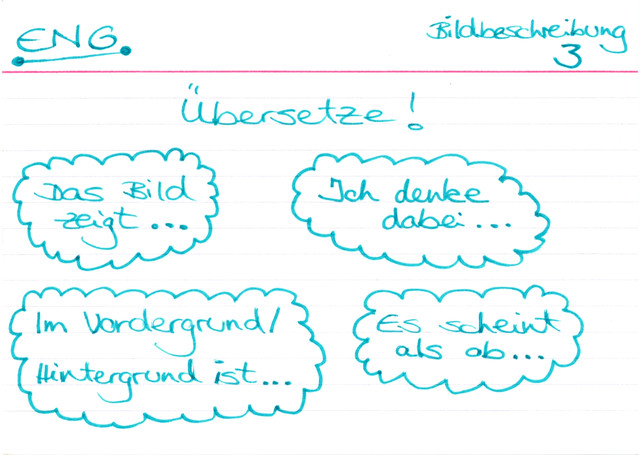 ENG.
Bildbeschreibung
3
Übersetze!
Das Bild
zeigt ...
Ich denke
dabei ...
Im Vordergrund/
Hintergrund ist ...
Es scheint
als ob ...